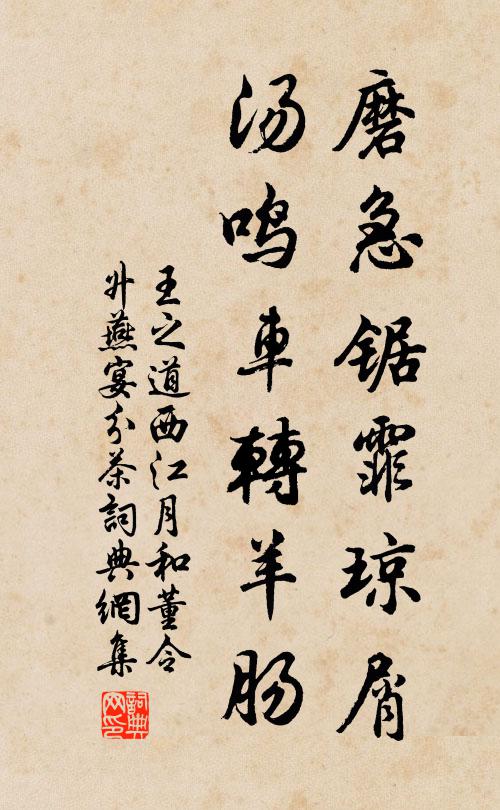 磨急锯霏琼屑
汤鸣車轉羊肠
王之道西江月和董令
升燕宴分茶詞典網集
詞典网印